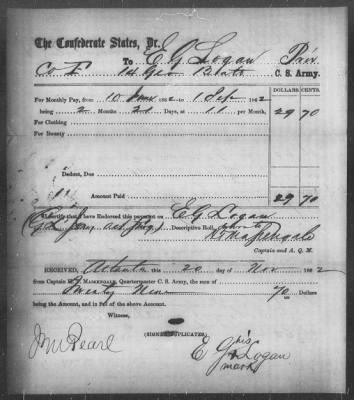 The Confederate States, Dr.
To E G Logan Priv
Co F 1st Geo Batt C. S. Army.
DOLLARS. CENTS.
For Monthly Pay, from 10 June 1862 to 1 Sep 1862
being 2 Months 21 Days, at 11 per Month, 29 70
For Clothing
For Bounty
Deduct, Due
Amount Paid 29 70
I certify that I have Endorsed this payment on E G Logan
Descriptive Roll,
Captain and A. Q. M.
RECEIVED, Atlanta this 20 day of Nov 1862
from Captain H. J. MASSENGALE, Quartermaster C. S. Army, the sum of
Twenty Nine 70 Dollars
being the Amount, and in full of the above Account.
Witness,
(SIGNED DUPLICATES)
J M Pearl
his
E G + Logan
mark